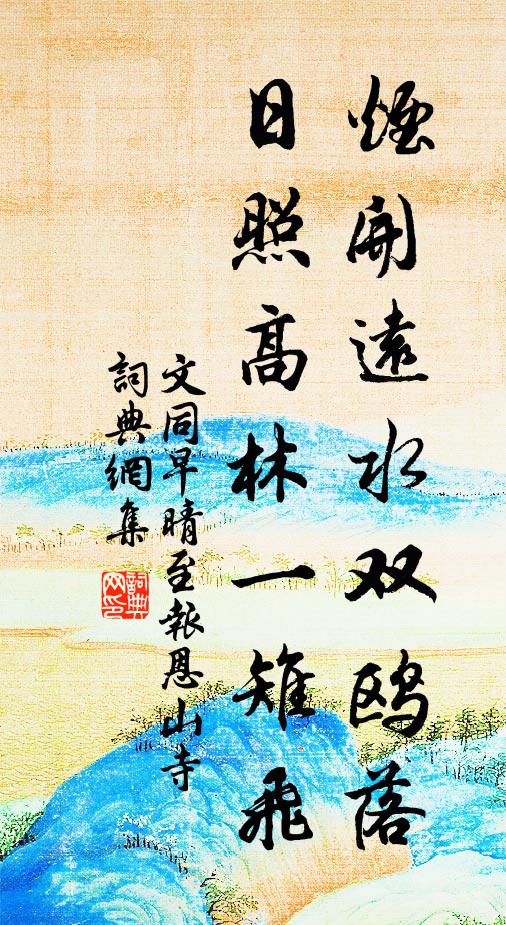 煙開遠水双鸥落
日照高林一雉飛
文同早晴至報恩山寺
詞典網集
詞典网印